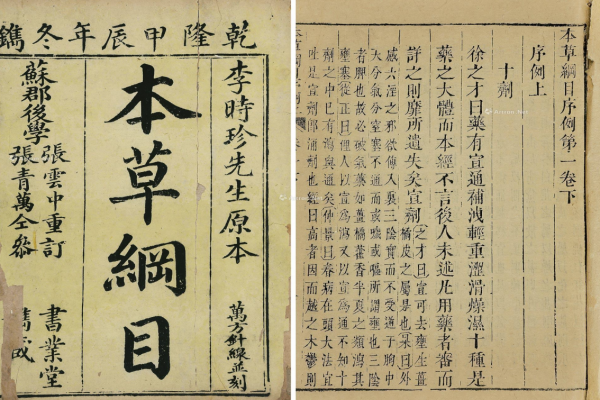 乾隆甲辰年冬鐫
李時珍先生原本
萬方針線並刻
本草綱目
蘇郡後學
張雲中重訂
張青萬仝參
書業堂
本草綱目序例第一卷下
序例上
十劑
徐之才曰藥有宣通補洩輕重澀滑燥濕十種是
藥之大體而本經不言後人未述凡用藥者審而
詳之則靡所遺失矣宣劑
之才曰宣可去壅生薑
橘皮之屬是也杲曰外
感六淫之邪欲傳入裏三陰實而不受逆于胸中
天分氣分窒塞不通而或噦或嘔所謂壅也三陰
者脾也故必破氣藥如薑橘藿香半夏之類瀉其
壅塞從正曰俚人以宣為瀉又以宣為通不知十
劑之中已有瀉與通矣仲景曰春病在頭大法宜
吐是宣劑即涌劑也經曰高者因而越之木鬱則